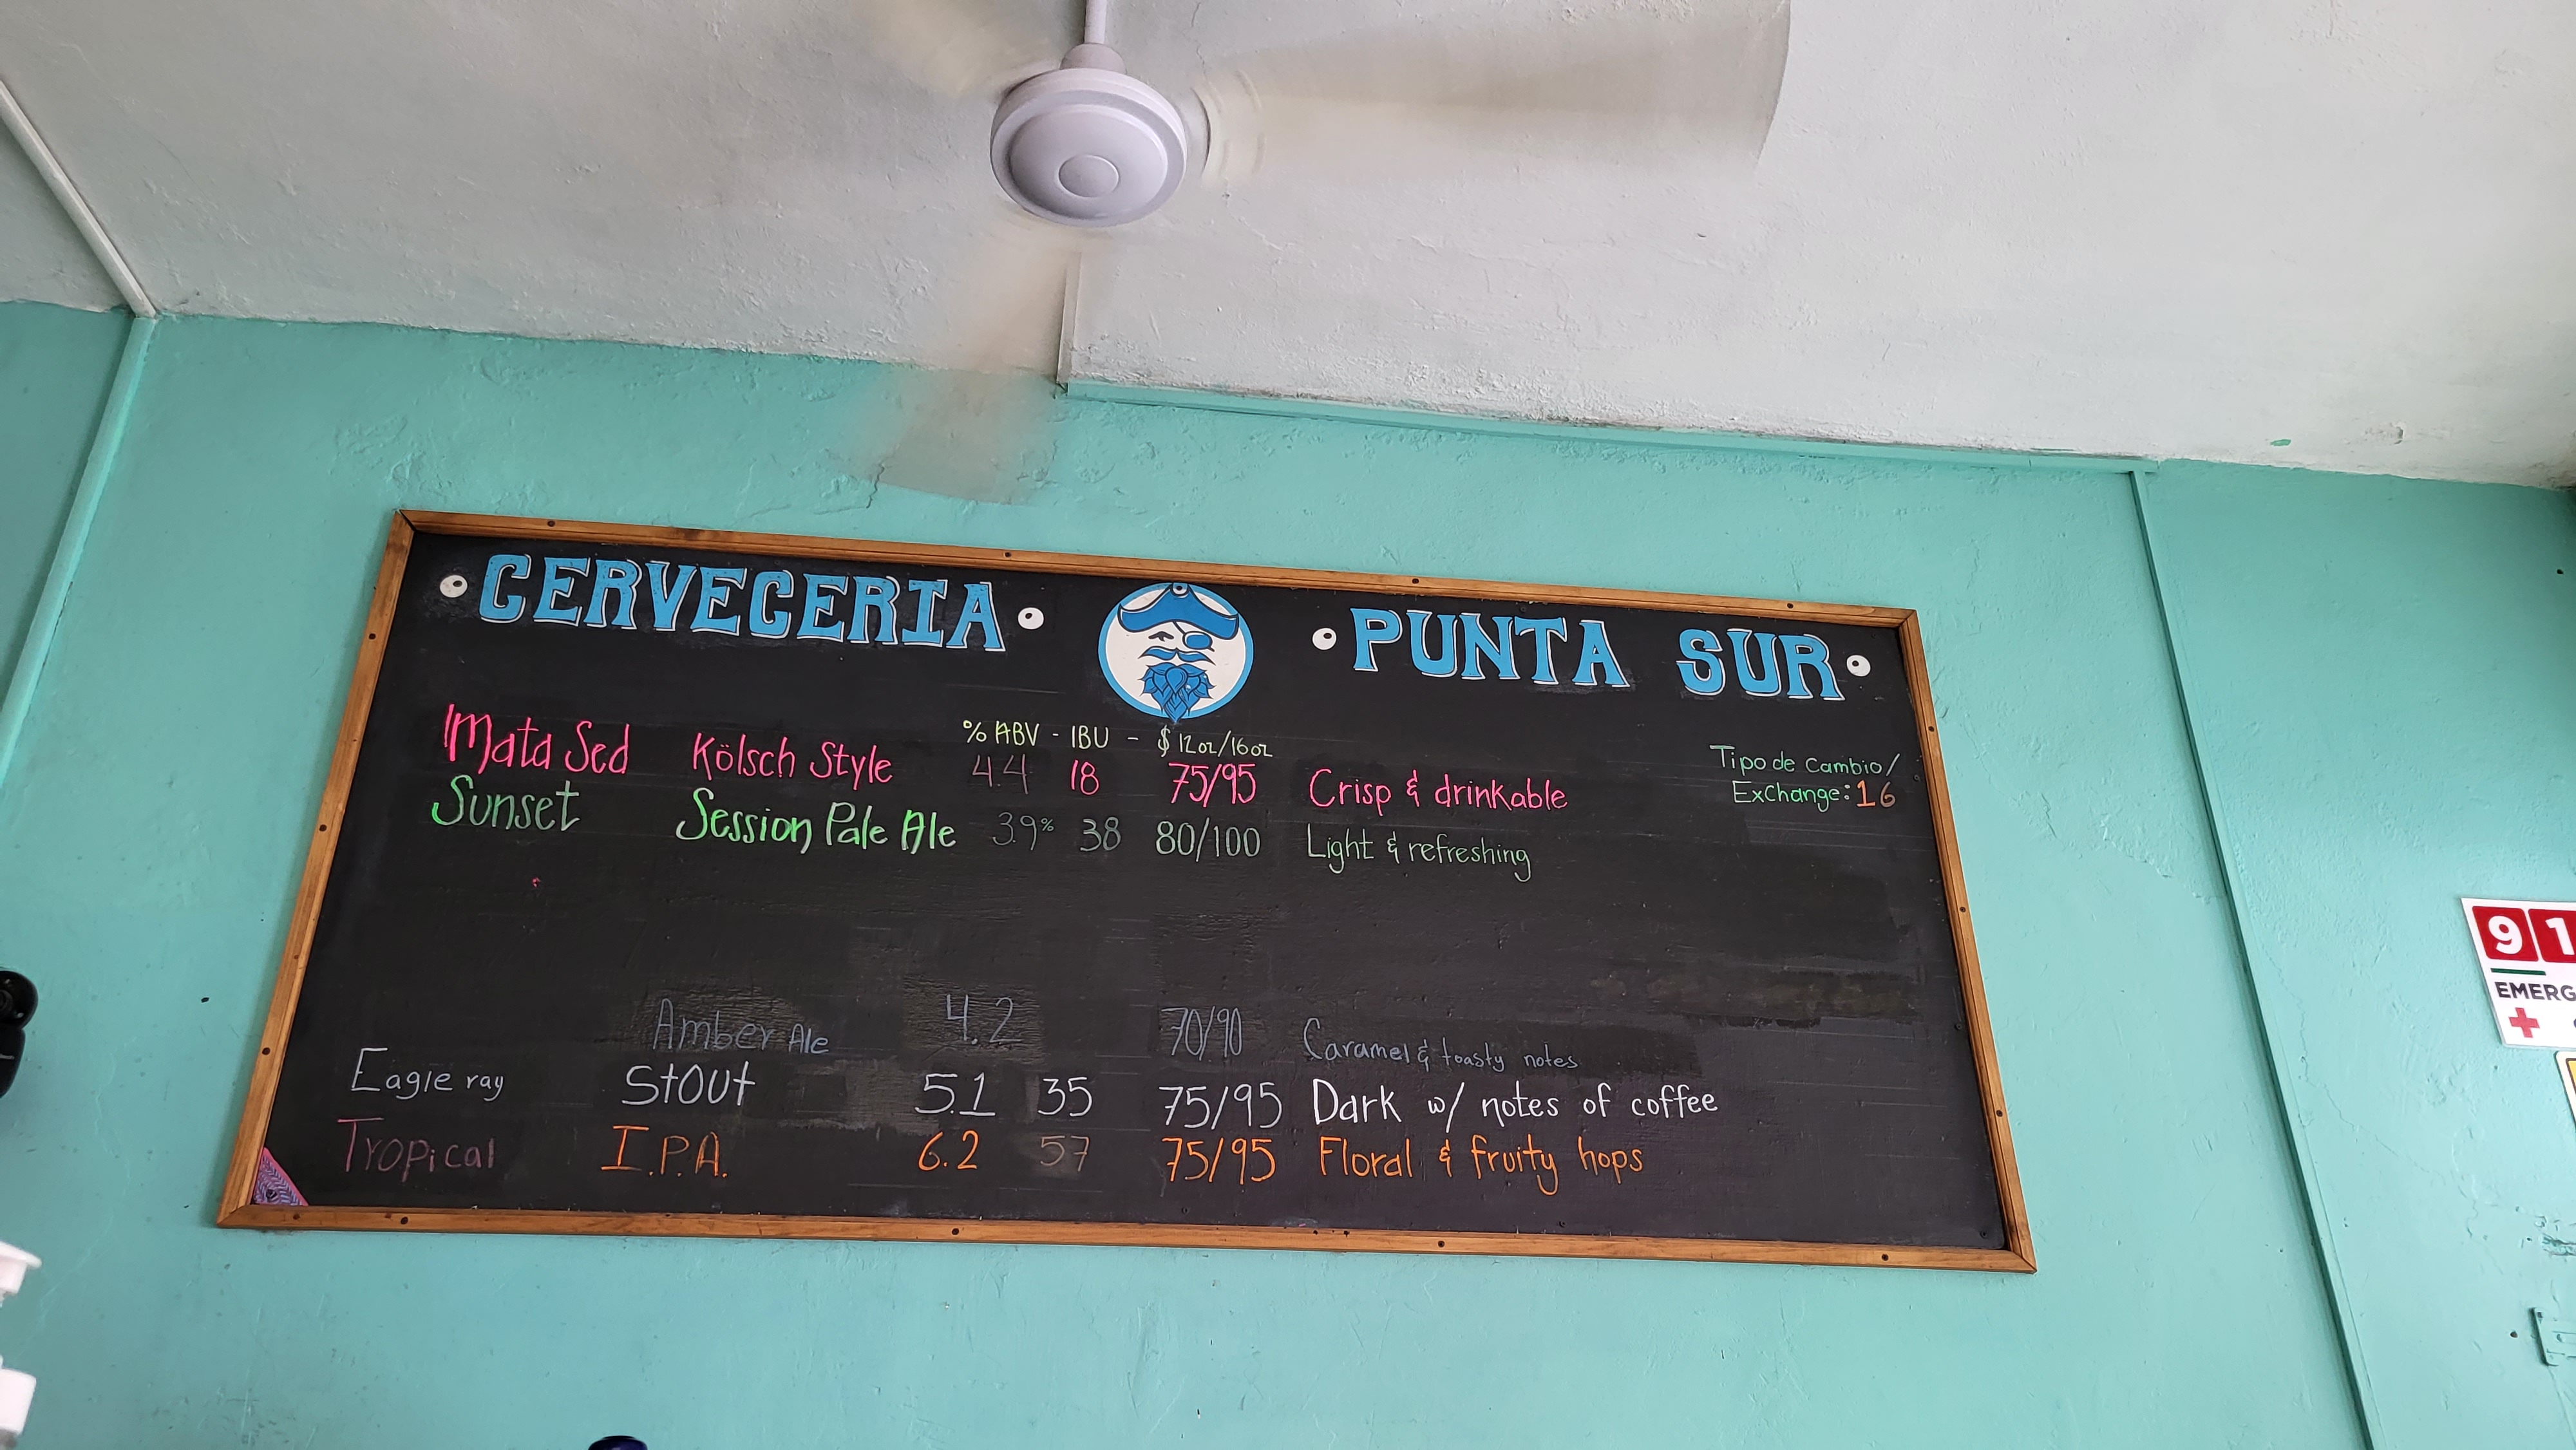 CERVECERIA PUNTA SUR
% ABV - IBU - $ 12oz/16oz
Mata Sed Kölsch Style 4.4 18 75/95 Crisp & drinkable
Sunset Session Pale Ale 3.9% 38 80/100 Light & refreshing
Tipo de cambio/
Exchange: 16
Amber Ale 4.2 70/90 Caramel & toasty notes
Eagle ray Stout 5.1 35 75/95 Dark w/ notes of coffee
Tropical I.P.A. 6.2 57 75/95 Floral & fruity hops
91
EMERG